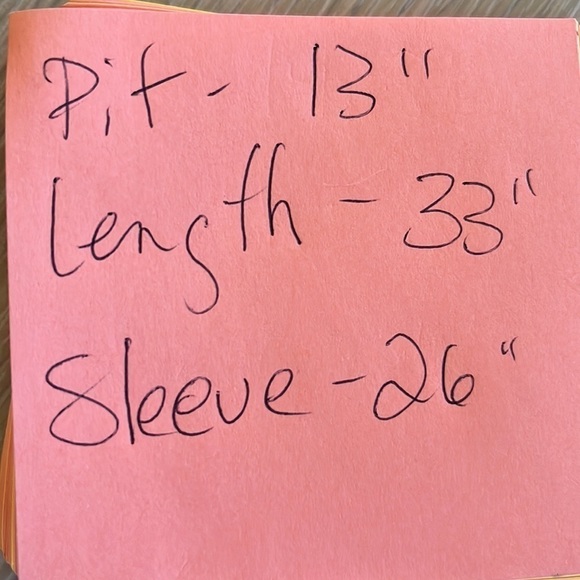 Pit - 13"
Length - 33"
Sleeve - 26"